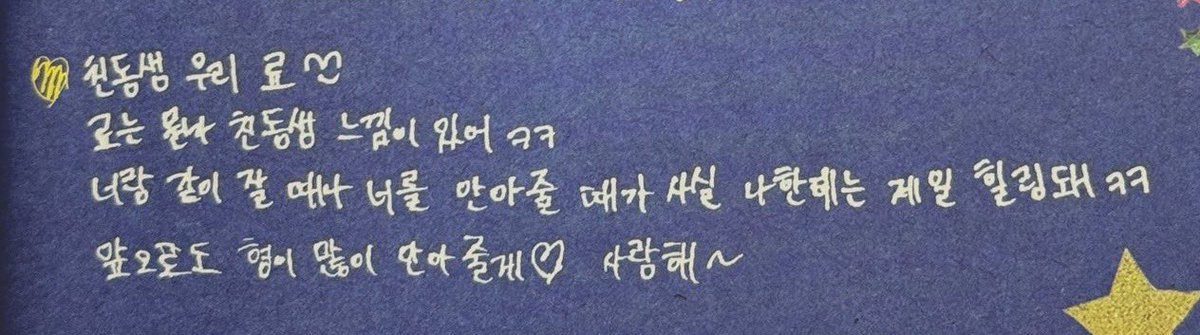 친동생 우리 료♡
료는 뭔가 친동생 느낌이 있어 ㅋㅋ
너랑 같이 잘 때나 너를 안아줄 때가 사실 나한테는 제일 힐링돼 ㅋㅋ
앞으로도 형이 많이 안아 줄게♡ 사랑해~